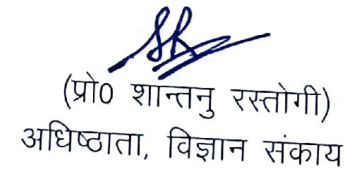 (प्रो0 शान्तनु रस्तोगी)
अधिष्ठाता, विज्ञान संकाय